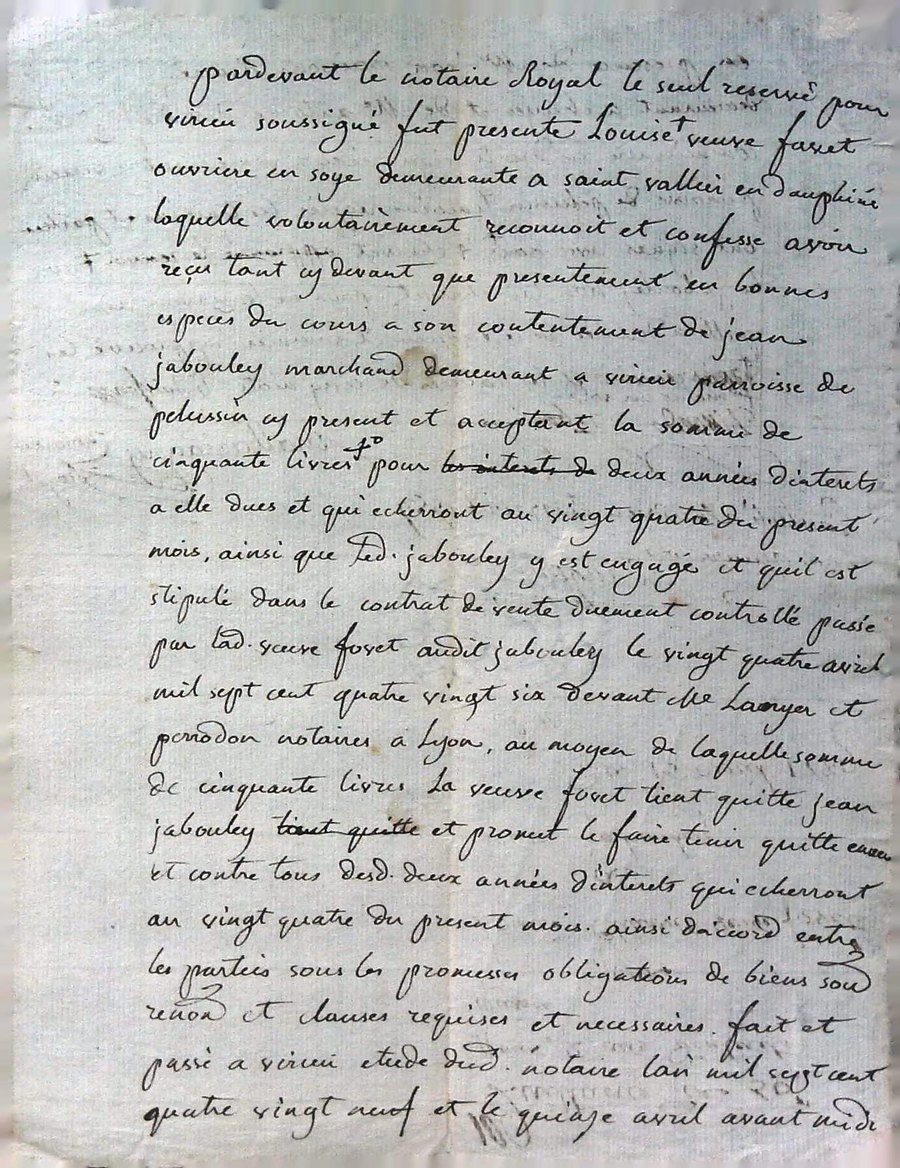 pardevant le notaire Royal le seul reservé pour
virieu soussigné fut presente Louise † veuve favet
ouvriere en soye demeurante a saint vallier en dauphiné
laquelle volontairement reconnoit et confesse avoir
reçu tant cy devant que presentement en bonnes
especes du cours a son contentement de jean
jabouley marchand demeurant a virieu parroisse de
pelussin cy present et acceptant la somme de
cinquante livres pour les interets de deux années d'interets
a elle dues et qui echerront au vingt quatre du present
mois, ainsi que led. jabouley y est engagé et quil est
stipulé dans le contrat de vente duement controllé passé
par lad. veuve fovet audit jabouley le vingt quatre avril
mil sept cent quatre vingt six devant Me et
perrodon notaires a Lyon, au moyen de laquelle somme
de cinquante livres La veuve fovet tient quitte jean
jabouley tient quitte et promet le faire tenir quitte envers
et contre tous desd. deux années d'interets qui echerront
au vingt quatre du present mois. ainsi d'accord entre
les parties sous les promesses obligations de biens soud
renond et clauses requises et necessaires. fait et
passé a virieu etude dud. notaire lan mil sept cent
quatre vingt neuf et le quinze avril avant midi